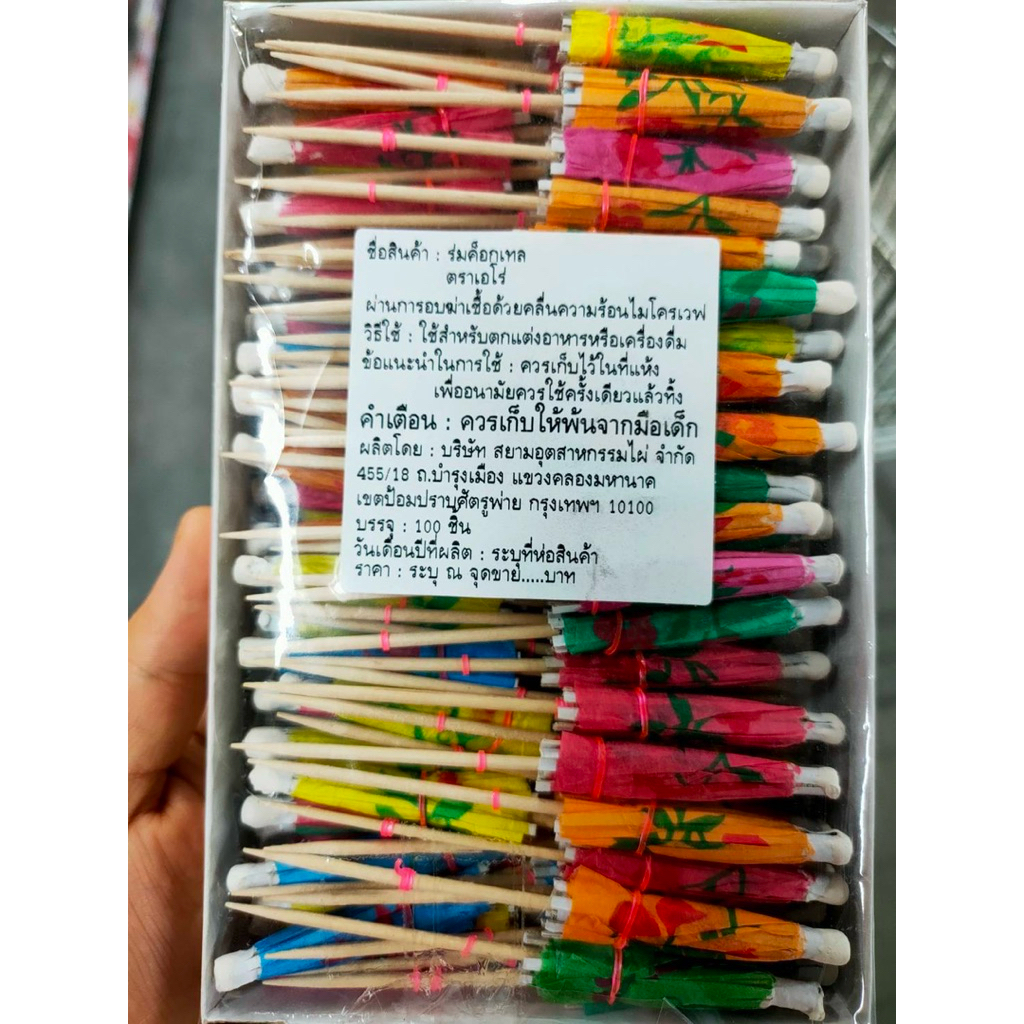 ชื่อสินค้า : ร่มค็อกเทล
ตราเอโร่
ผ่านการอบฆ่าเชื้อด้วยคลื่นความร้อนไมโครเวฟ
วิธีใช้ : ใช้สำหรับตกแต่งอาหารหรือเครื่องดื่ม
ข้อแนะนำในการใช้ : ควรเก็บไว้ในที่แห้ง
เพื่ออนามัยควรใช้ครั้งเดียวแล้วทิ้ง
คำเตือน : ควรเก็บให้พ้นจากมือเด็ก
ผลิตโดย : บริษัท สยามอุตสาหกรรมไผ่ จำกัด
455/18 ถ.บำรุงเมือง แขวงคลองมหานาค
เขตป้อมปราบศัตรูพ่าย กรุงเทพฯ 10100
บรรจุ : 100 ชิ้น
วันเดือนปีที่ผลิต : ระบุที่ห่อสินค้า
ราคา : ระบุ ณ จุดขาย.....บาท